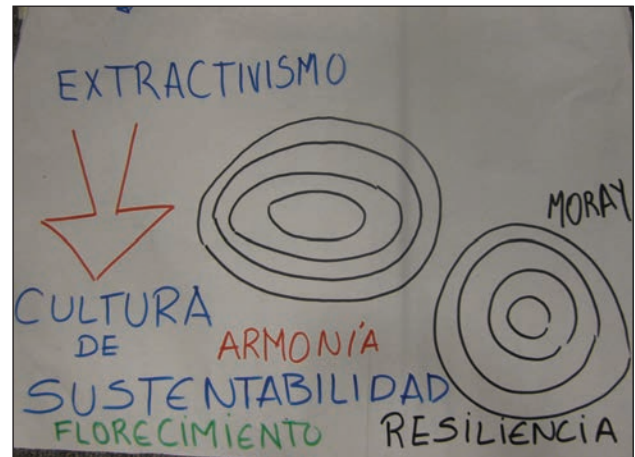 EXTRACTIVISMO
MORAY
CULTURA
DE
ARMONÍA
SUSTENTABILIDAD
FLORECIMIENTO
RESILIENCIA